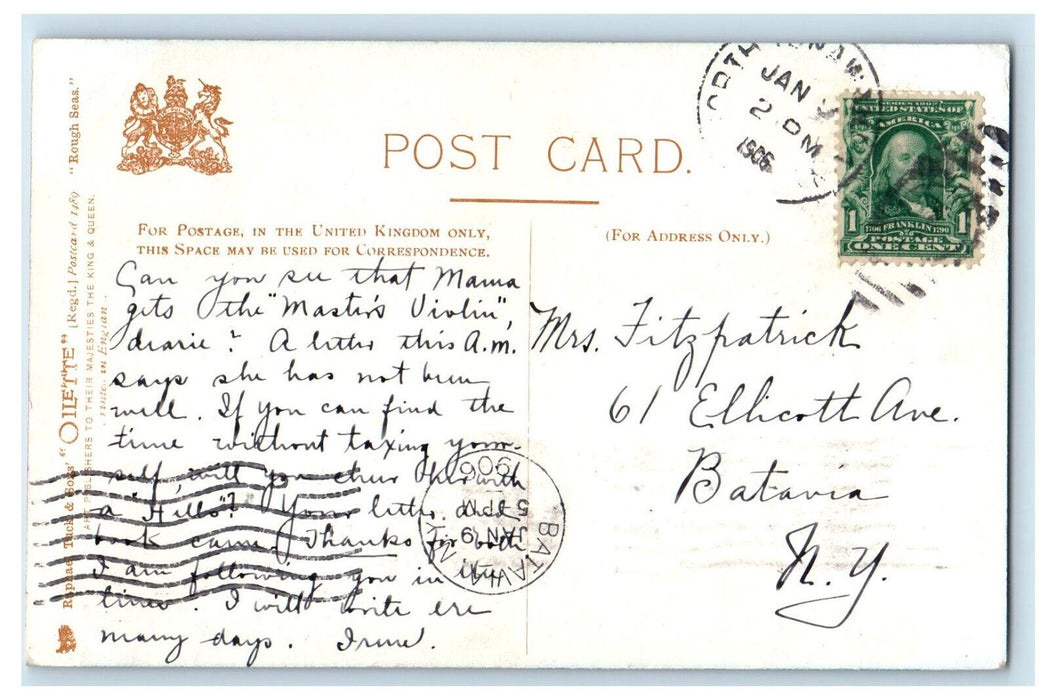 POST CARD.
FOR POSTAGE, IN THE UNITED KINGDOM ONLY,
THIS SPACE MAY BE USED FOR CORRESPONDENCE.
(FOR ADDRESS ONLY.)
Can you see that Mama
gets the "Master's Violin",
dearie? A letter this A.m.
says she has not been
well. If you can find the
time without taxing your-
self, will you cheer her with
a "Hello"? Your letter and
book came. Thanks for both
I am following you in
lines. I will write ere
many days. Irene.
Mrs. Fitzpatrick
61 Ellicott Ave.
Batavia
N.Y.
JAN
2 PM
1906
SERIES 1902
UNITED STATES OF
AMERICA
1 1
1706 FRANKLIN 1790
POSTAGE
ONE CENT
BATAVIA
JAN 9
5 PM
1906
N.Y.
Raphael Tuck & Sons' "OILETTE" [Regd.] Postcard 1489 "Rough Seas."
ART PUBLISHERS TO THEIR MAJESTIES THE KING & QUEEN.